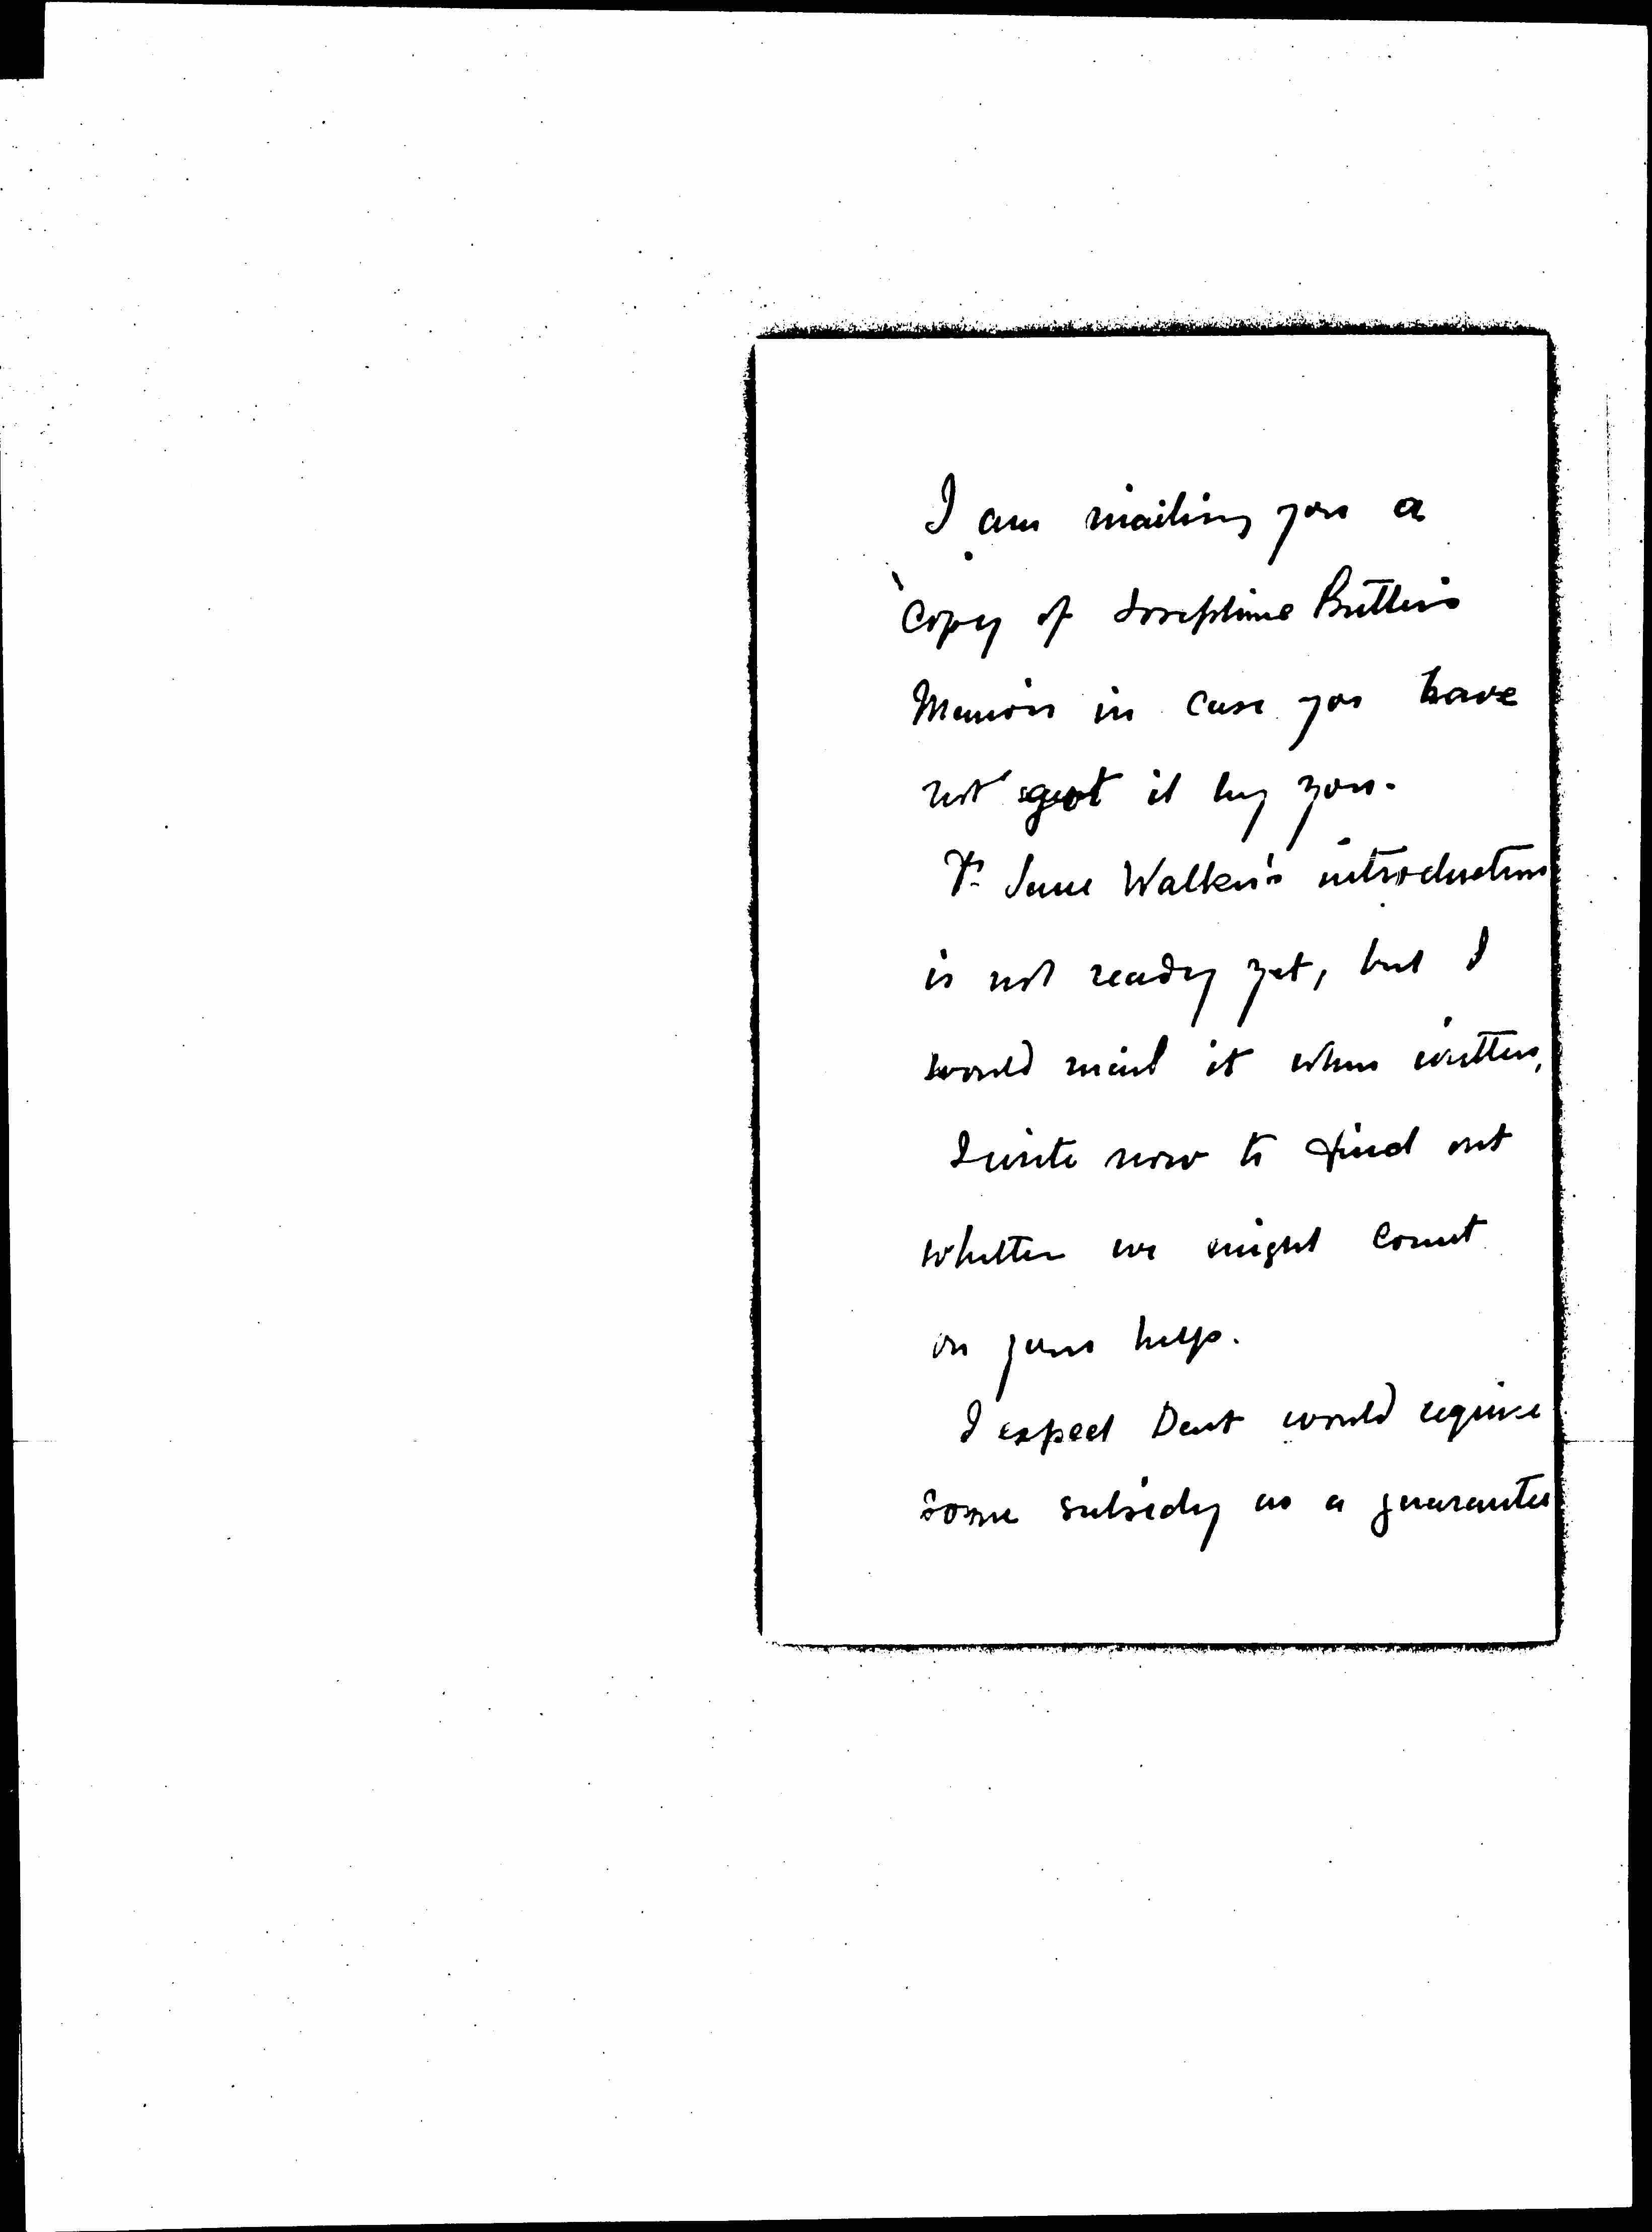 I am mailing you a
copy of Josephine Butler's
Memoirs in case you have
not got it by you.
Dr Jane Walker's introduction
is not ready yet, but I
would mail it when written,
I write now to find out
whether we might count
on your help.
I expect Dent would require
some subsidy as a guarantee